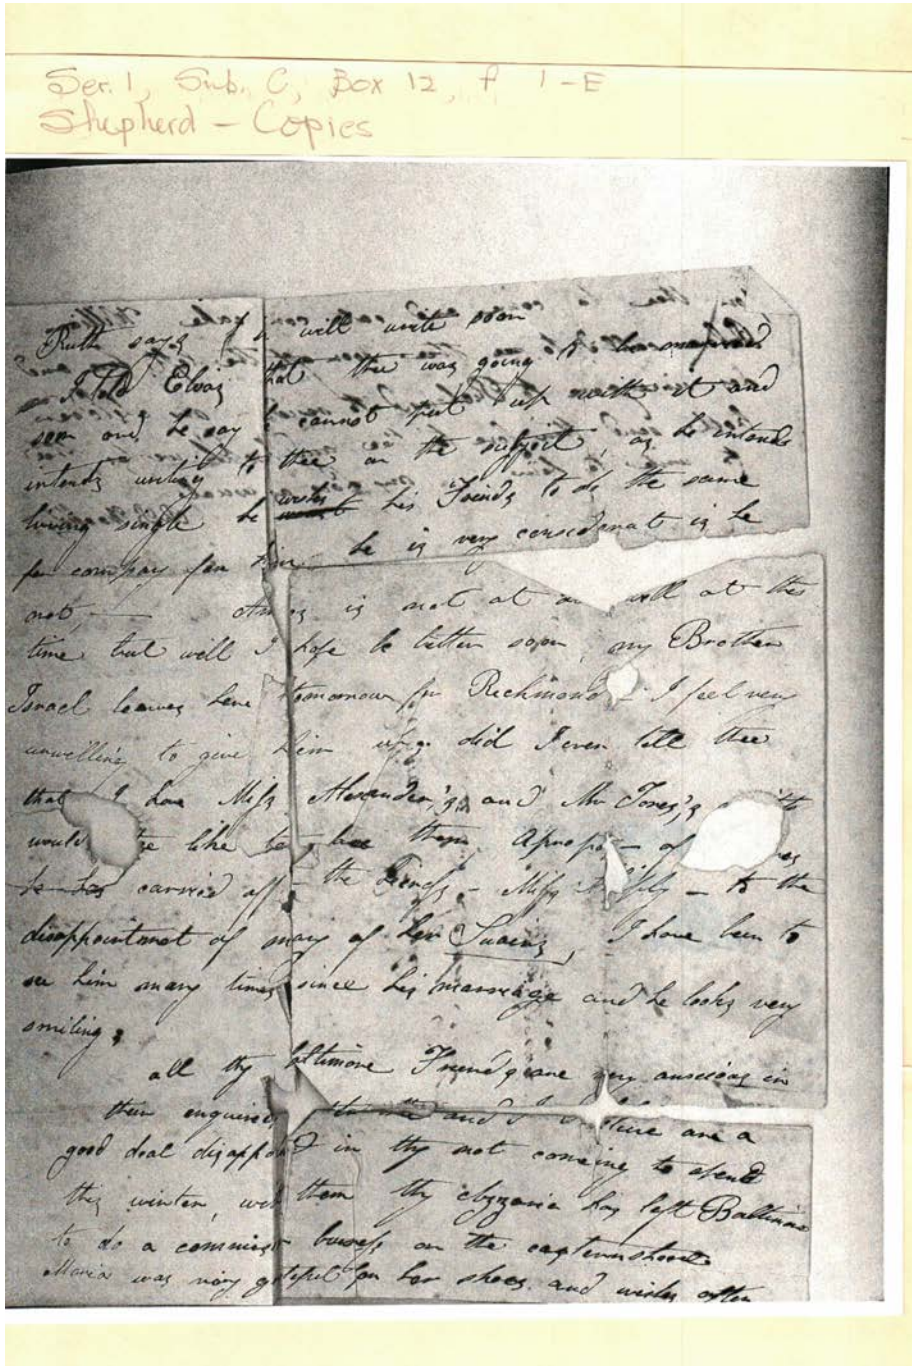 Ser. 1, Sub. C, Box 12, f 1-E
Shepherd - Copies
Ruth says she will write soon
I told Elvas that thee was going to be married
soon and he say he cannot put up with it and
intends writing to thee on the subject, as he intends
living single he wishes his Friends to do the same
for company for him he is very considerat is he
not, — is not at all well at this
time but will I hope be better soon, my Brother
Israel leaves here tomorrow for Richmond - I feel very
unwelling to give him up. did I ever tell thee
that I have Miss Alexander,s and Mr Jones,s
would thee like to have them. Apropos - of
he has carried off - the - Miss - to the
disappointment of many of her Swains, I have been to
see him many times since his marriage and he looks very
smiling,
all thy Baltimore Friends are very anscious in
their enquires and I there are a
good deal disappointed in thy not comeing to spend
this winter, with them thy has left Baltimore
to do a commision buisness on the eastern shore
Maria was very grateful for her shoes and wishes often